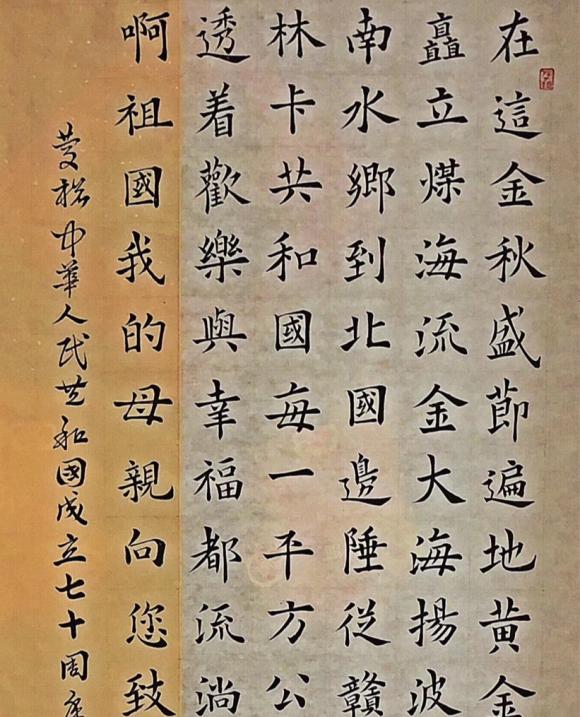 在這金秋盛節遍地黄金
矗立煤海流金大海揚波
南水鄉到北國邊陲從贛
林卡共和國每一平方公
透着歡樂與幸福都流淌
啊祖國我的母親向您致
中華人民共和國成立七十周